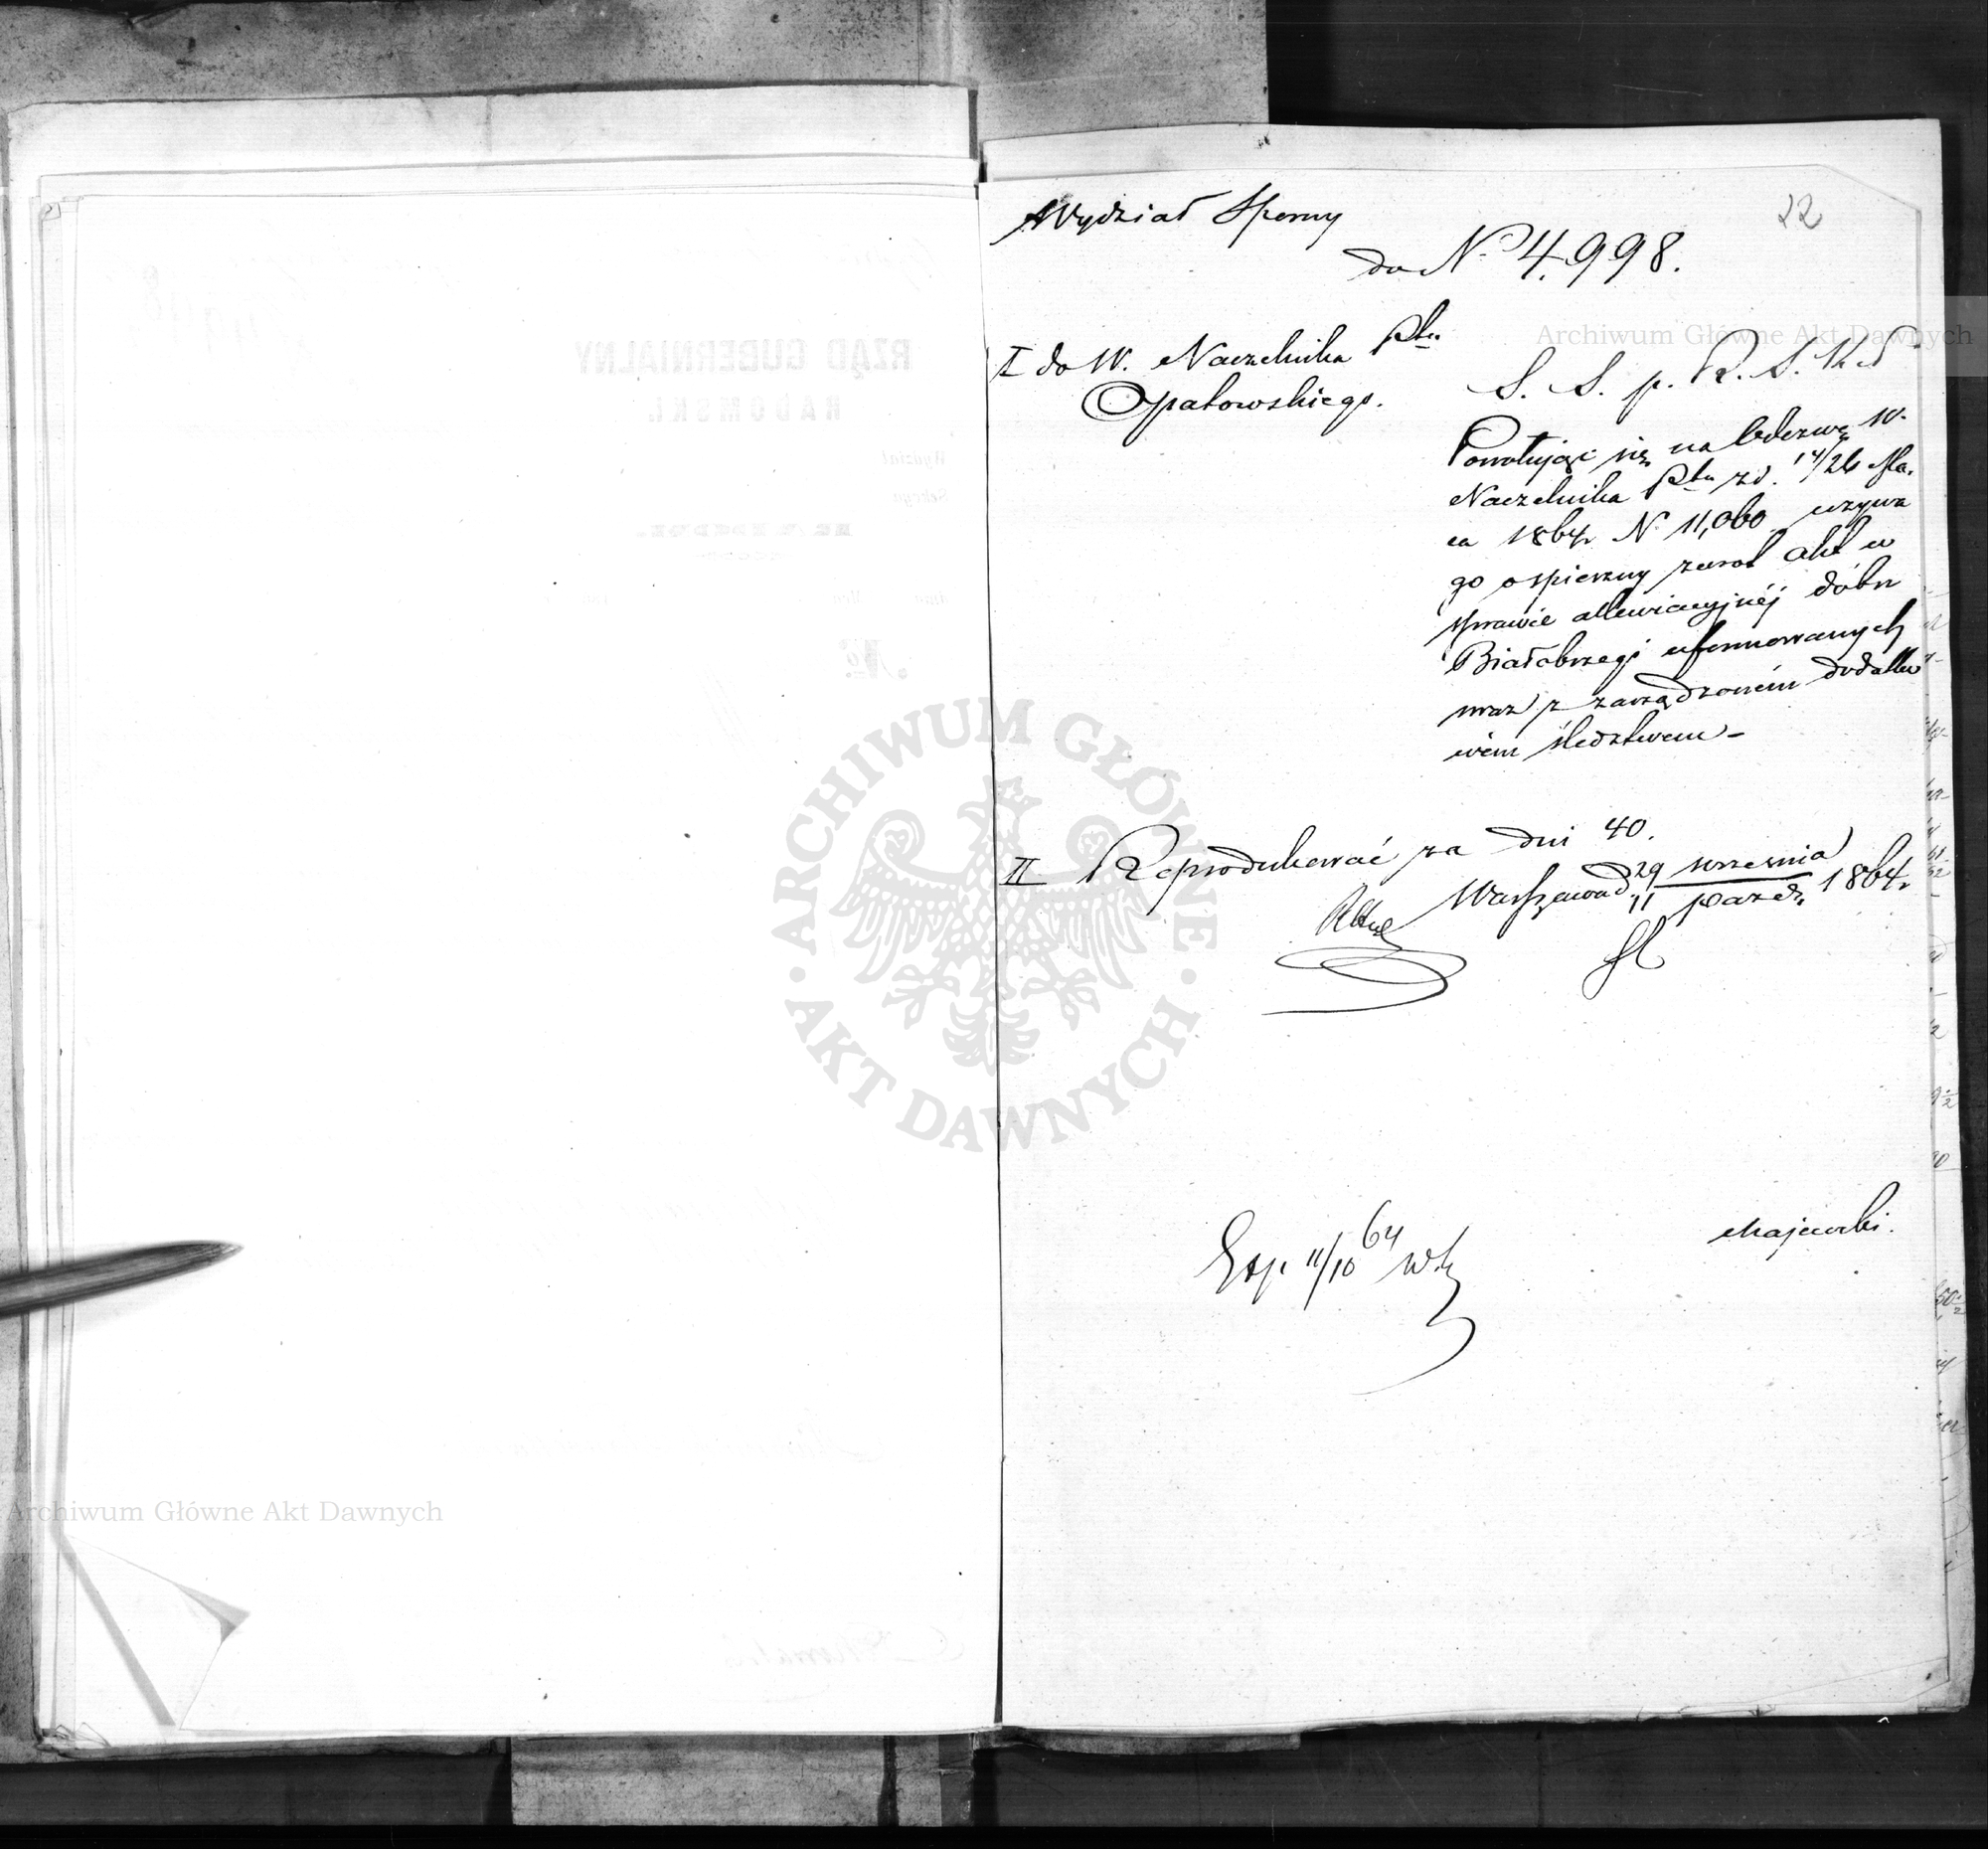 22
Wydział Sporny
do N. 4,998.
I do W. Naczelnika Ptu
Opatowskiego.
S. S. p. R. S. K.
Powołując się na Odezwę W.
Naczelnika Ptu z d. 14/26 Ma,
ca 1864 r N 11,060 wzywa
go o spieszny zwrot akt w
sprawie allewiacyjnéj dóbr
Białobrzegi uformowanych
wraz z zarządzoném dodatko
wém śledztwem –
II Reprodukować za dni 40.
Warszawa d. 29 września / 11 paźdz. 1864 r
Exp. 11/10 64
Majewski.
RZĄD GUBERNIALNY
RADOMSKI.
Wydział
Sekcya
No.
Archiwum Główne Akt Dawnych
ARCHIWUM GŁÓWNE
· AKT DAWNYCH ·
Archiwum Główne Akt Dawnych